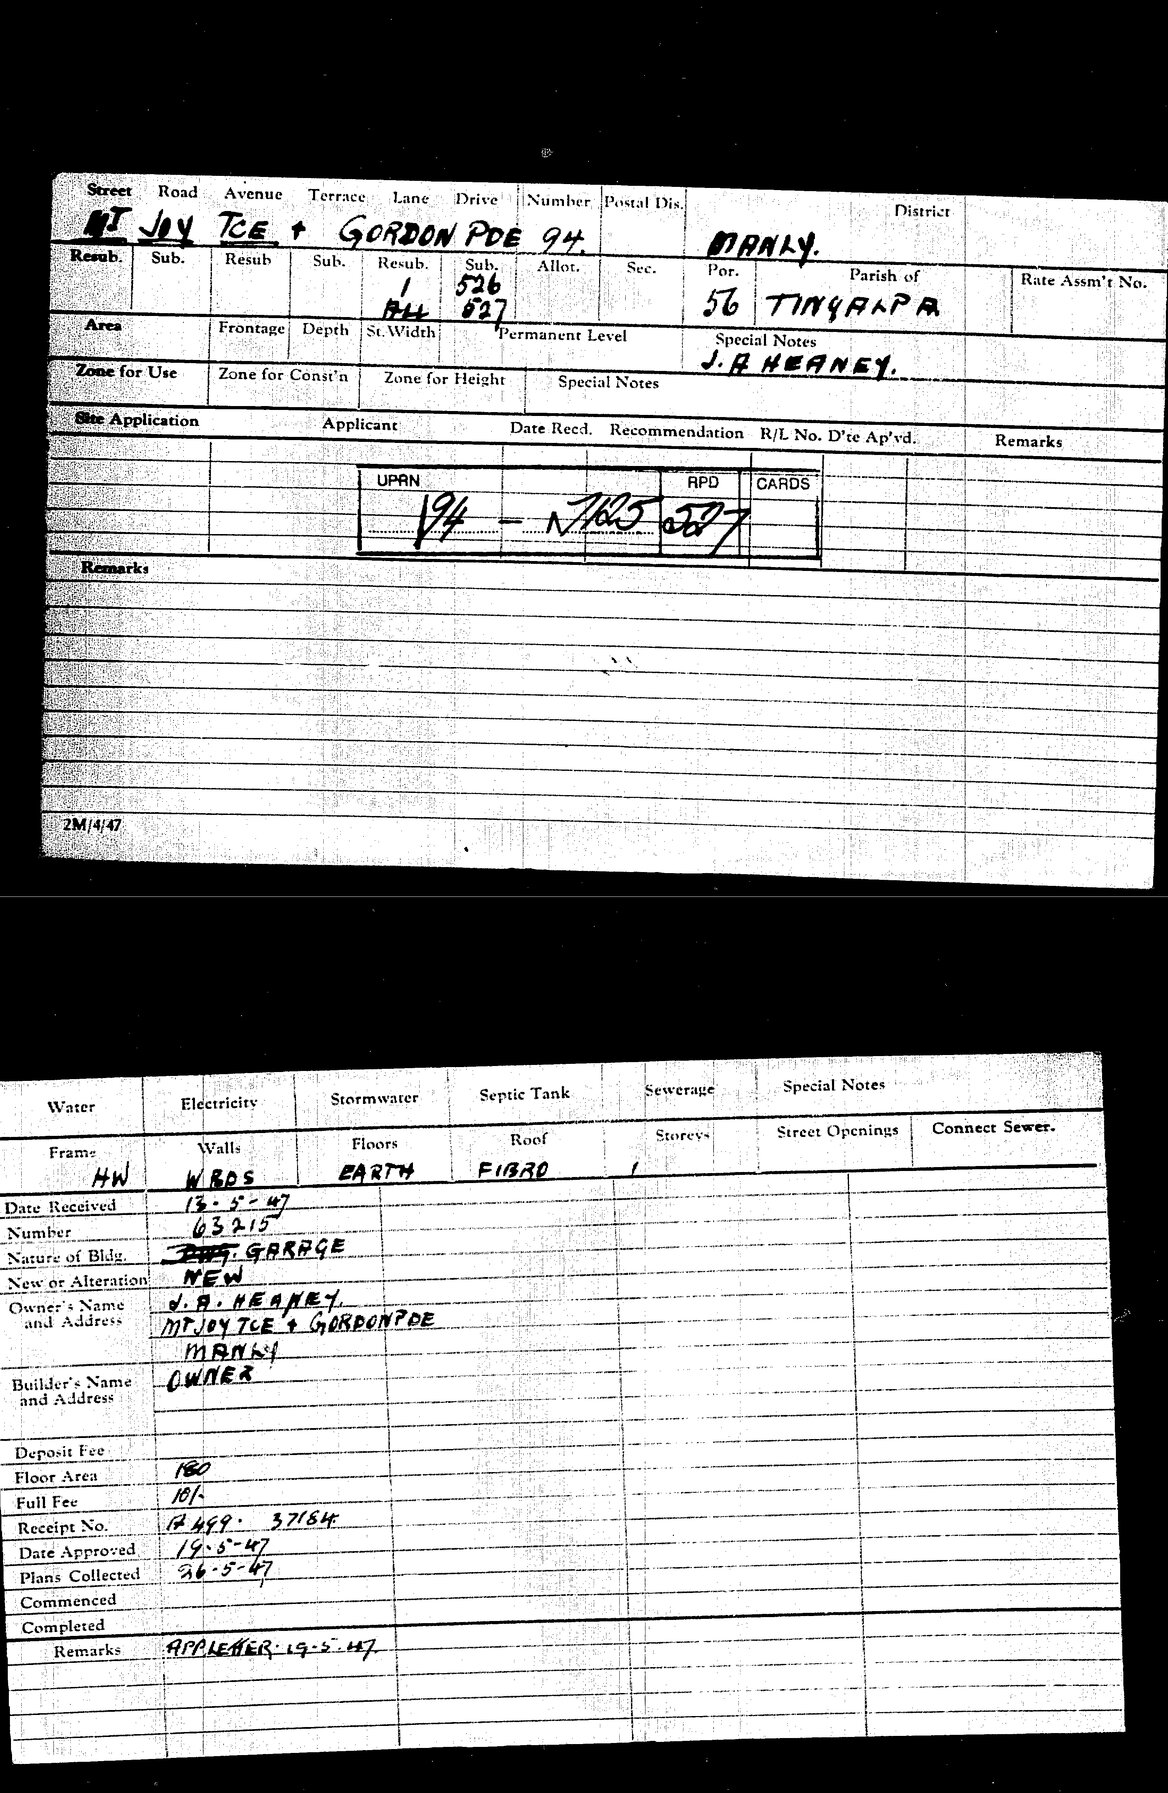 Street Road Avenue Terrace Lane Drive Number Postal Dis. District
MT JOY TCE + GORDON PDE 94. MANLY.
Resub. Sub. Resub Sub. Resub. Sub. Allot. Sec. Por. Parish of Rate Assm't No.
1 526
ALL 527 56 TINGALPA
Area Frontage Depth St. Width Permanent Level Special Notes
J. A HEANEY.
Zone for Use Zone for Const'n Zone for Height Special Notes
Site Application Applicant Date Recd. Recommendation R/L No. D'te Ap'vd. Remarks
UPRN RPD CARDS
194 - 527
Remarks
2M/4/47
Water Electricity Stormwater Septic Tank Sewerage Special Notes
Frame Walls Floors Roof Storeys Street Openings Connect Sewer.
HW WBDS EARTH FIBRO 1
Date Received 13-5-47
Number 63215
Nature of Bldg. GARAGE
New or Alteration NEW
Owner's Name J. A. HEANEY.
and Address MT JOY TCE + GORDON PDE
MANLY
Builder's Name OWNER
and Address
Deposit Fee
Floor Area 180
Full Fee 10/-
Receipt No. A 499. 37184
Date Approved 19-5-47
Plans Collected 26-5-47
Commenced
Completed
Remarks APP LETTER. 19.5.47